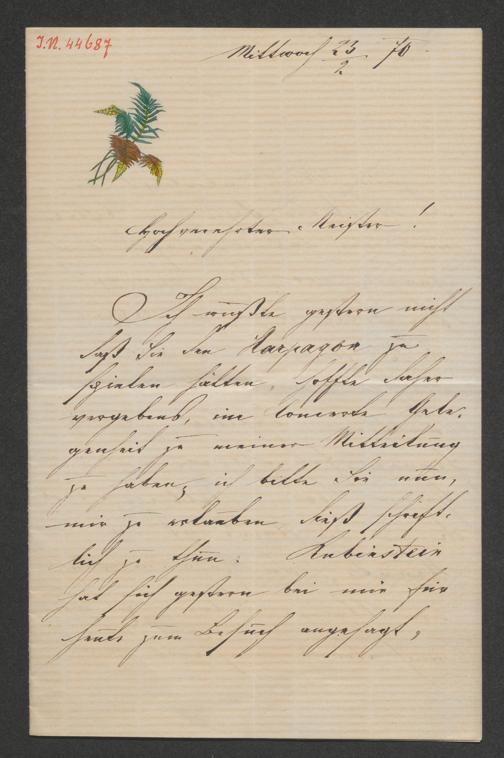 I.N. 44687
Mittwoch 23/2 70.
Hochverehrter Meister!
Ich wußte gestern nicht
daß Sie den Harpagon zu
spielen hatten, hoffte daher
vergebens, im Concerte Gele-
genheit zu meiner Mitteilung
zu haben; ich bitte Sie nun,
mir zu erlauben dieß schrift-
lich zu thun. Rubinstein
hat sich gestern bei mir für
heute zum Besuch angesagt,